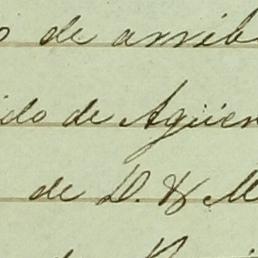 o de arrib
ido de Agüer
de D. y M